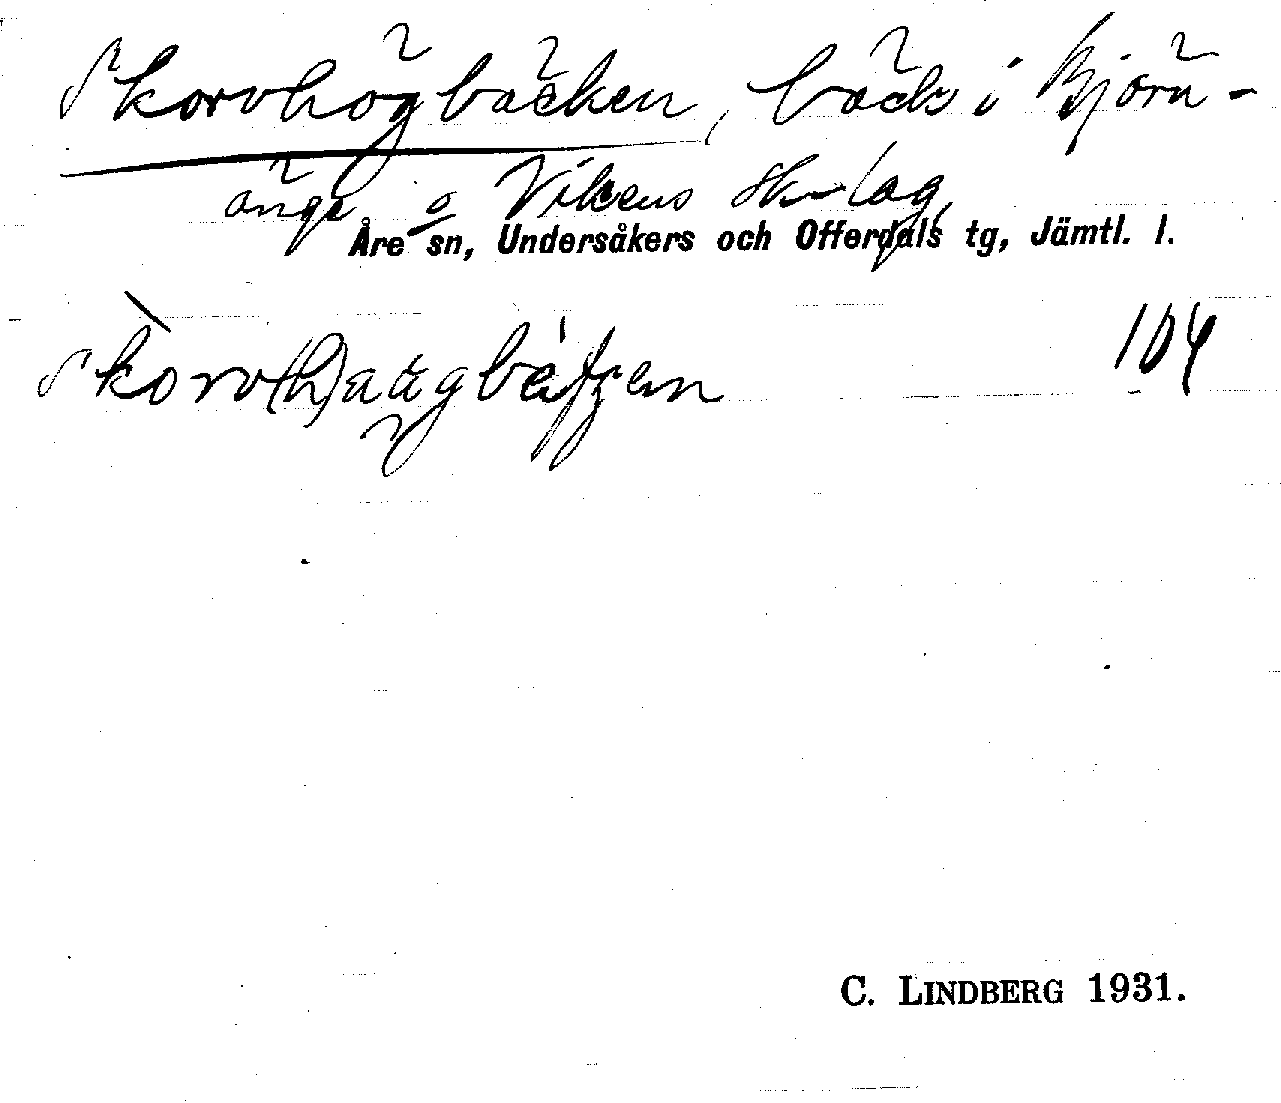 Skorvhögbäcken, bäck i Björn-
änge o Vikens sk-lag,
Åre sn, Undersåkers och Offerdals tg, Jämtl. l.
104
C. LINDBERG 1931.